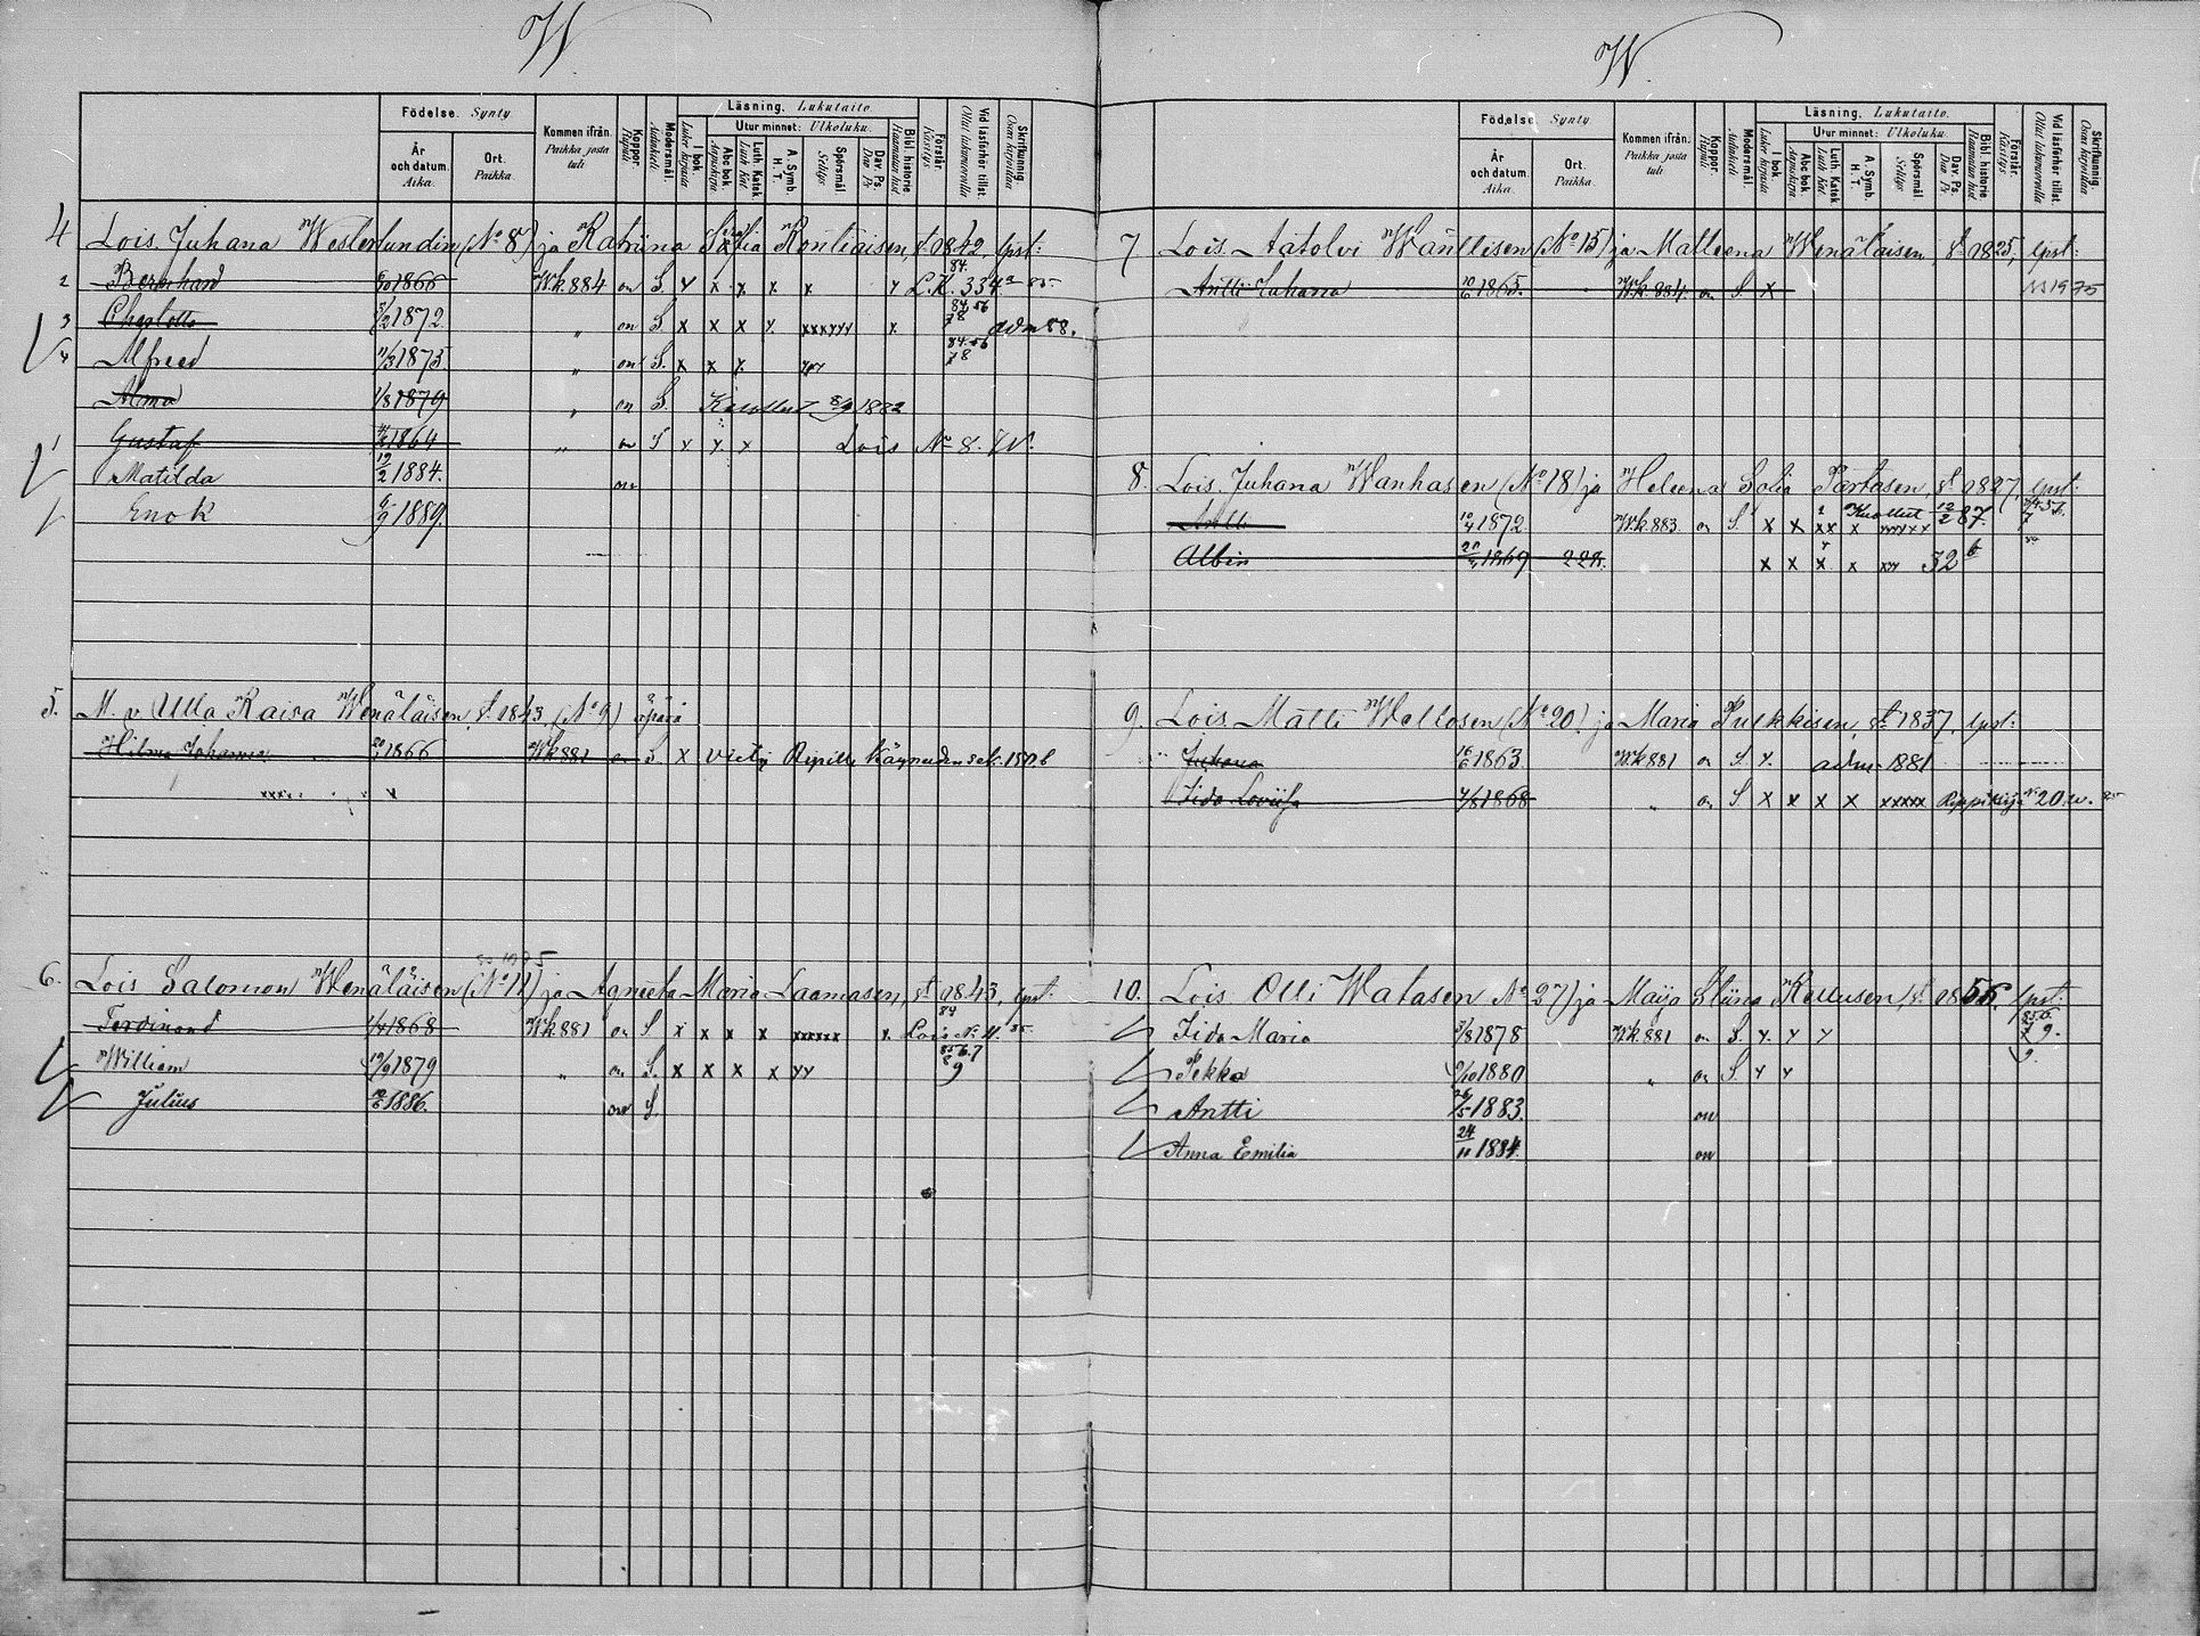 W
Födelse. Synty
År och datum. Aika.
Ort. Paikka.
Kommen ifrån. Paikka josta tuli
Koppor. Rupuli
Modersmål. Äidinkieli.
Läsning. Lukutaito.
I bok. Lukee kirjasta
Utur minnet: Ulkoluku.
Abc bok. Aapiskirja
Luth. Katek. Luth Kat.
A. Symb. H. T.
Spörsmål Selitys
Dav. Ps. Dav Ps
Bibl. historie. Raamatun hist.
Förstår. Käsitys.
Vid läsförhör tillst. Ollut lukuvuoroilla
Skrifkunnig. Osaa kirjoittaa
4 Lois. Juhana Westerlundin (No 8) ja Katriina Sofia Rontiaisen, st. 1842, lpst:
2 Bernhard 1866 W.k 884 on S. x x x x x x 84. L.K. 334a 85
3 Charlotta 5/2 1872 " on S x x x x xxxxxx x 84 56 78 adm 88.
4 Alfred 11/3 1873. " on S. x x x xxx 84.56 78
Alma 1/8 1879 " on S. Kuollut 8/9 1882
1 Gustaf 1864 " on S x x x Lois No 8. W.
Matilda 19/2 1884. on
Enok 6/9 1889.
5. M. v. Ulla Kaisa Wenäläisen s. 1843, (No 9) äpärä
Hilma Johanna 1866 W.k 881 on S. x viety Ripille käyneiden 150.b
6. Lois Salomon Wenäläisen (No 11) ja Agneeta Maria Laamasen, st 1843, lpst:
Ferdinand 1868 W.k 881 on S x x x x xxxxxx x. 84 Lois No 11. 85.
William 19/9 1879 " on S. x x x x xx 9
Julius 1886. on S.
W.
Födelse. Synty.
År och datum. Aika.
Ort. Paikka.
Kommen ifrån. Paikka josta tuli
Koppor. Rupuli
Modersmål. Äidinkieli.
Läsning, Lukutaito.
I bok. Lukee kirjasta
Utur minnet: Ulkoluku.
Abc bok. Aapiskirja
Luth. Katek Luth Kat.
A. Symb. H. T.
Spörsmål Selitys
Dav. Ps. Dav Ps
Bibl. historie. Raamatun hist.
Förstår. Käsitys.
Vid läsförhör tillst. Ollut lukuvuoroilla
Skrifkunnig. Osaa kirjoittaa
7. Lois. Aatolvi Wänttisen (No 15) ja Malleena Wenäläisen st 1825, lpst:
Antti Juhana 10/6 1865. W.k. 884. on S. x
8. Lois. Juhana Wanhasen (No 18) ja Heleena Sofia Partasen, st 1827, lpst:
Antti 10/4 1872. W.k. 883. on S. x x xx x xxxxxx Kuollut 12/2 87.
Albin 1869 x x x x xxx 32 b
9. Lois. Matti Wellosen (No 20) ja Maria Pulkkisen, st 1837, lpst:
Juhana 16/6 1863. W.k 881 on S x. adm. 1881
Iida Loviisa 4/8 1868 " on S x x x x xxxxx No 20. w.
10. Lois. Olli Watasen No 27) ja Maija Stiina Kellusen, st. 1856. lpst:
Iida Maria 3/8 1878 W.k. 881 on S. x. x x 9.
Pekka 1880 " on S. x x 9.
Antti 26/5 1883. on
Anna Emilia 24/11 1884. on